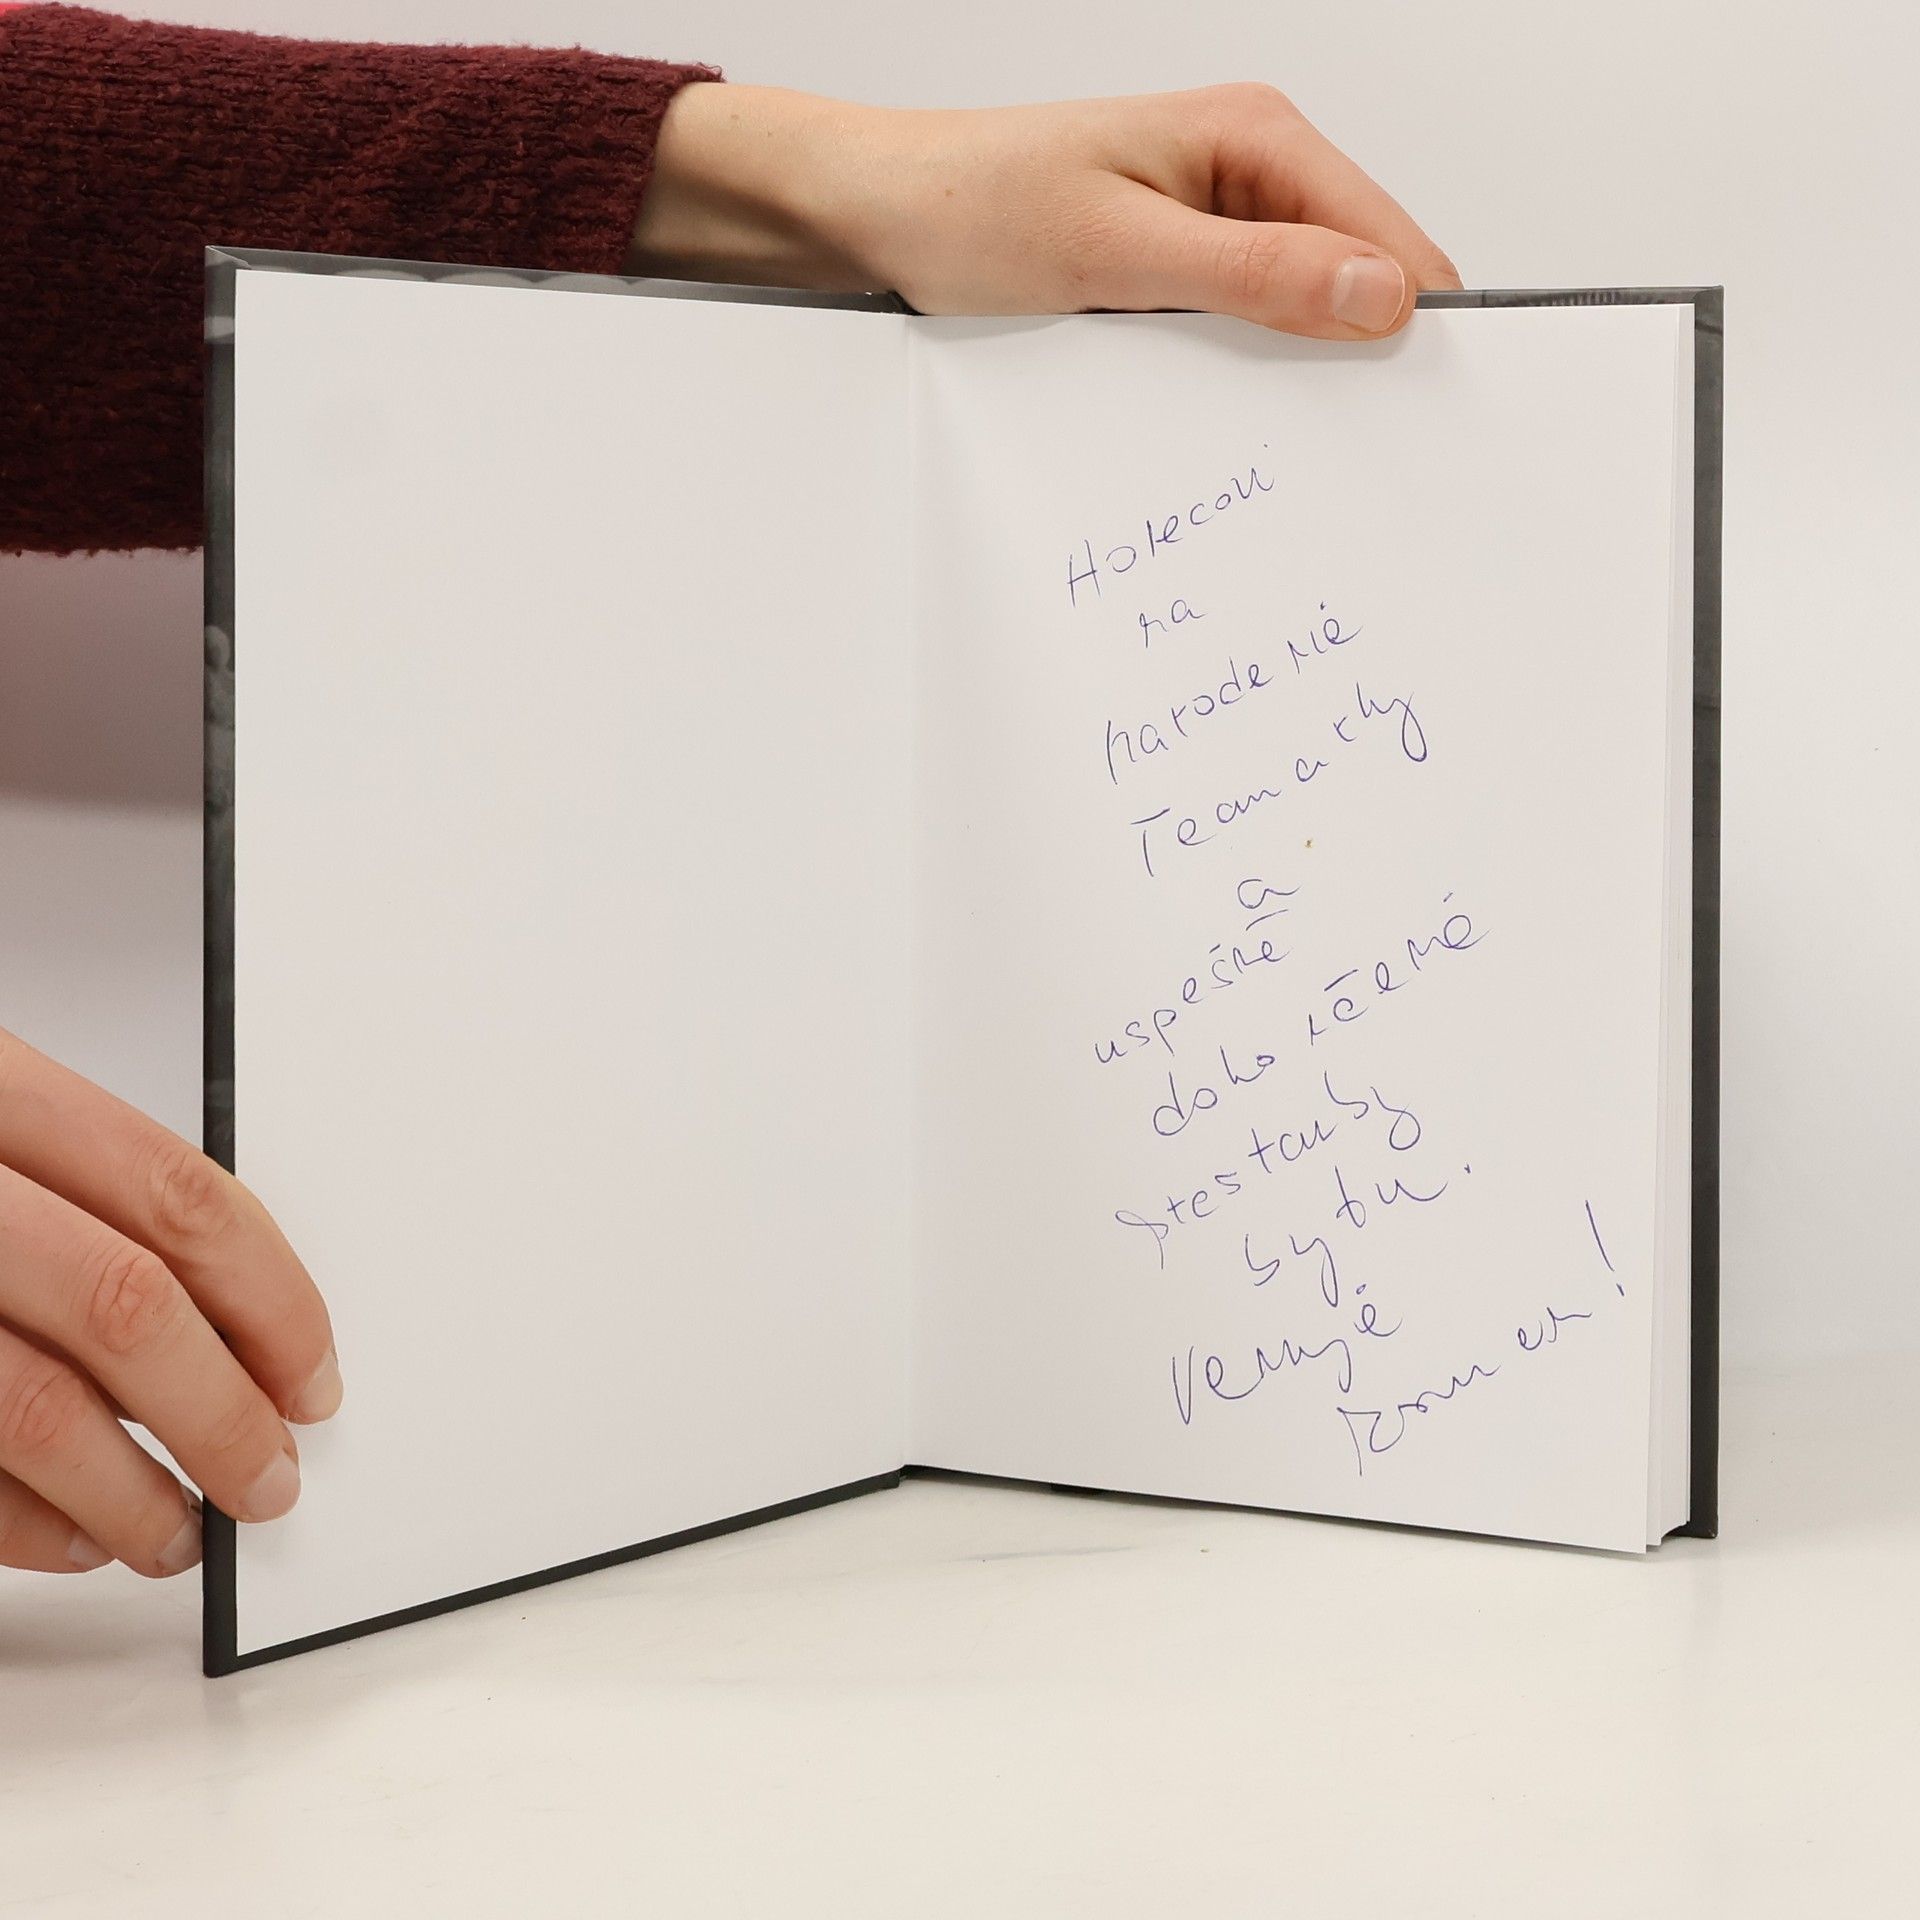 Holecovi
na
narodenié
Teamatky
a
uspešně
dokončené
přestavby
bytu.
Venuje